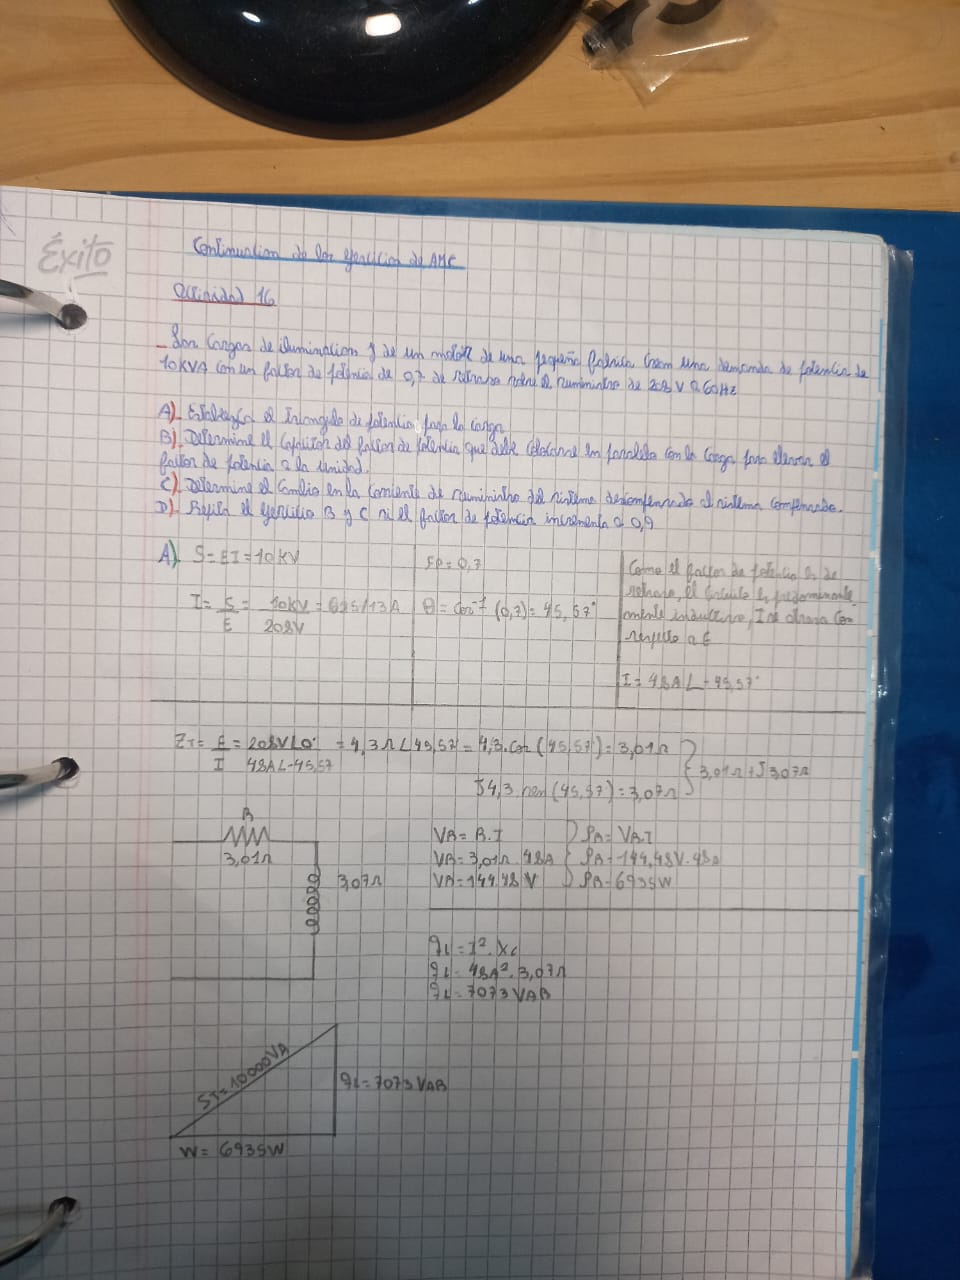 Éxito
Continuation de los ejercicios de AMC
Actividad 16
_ Las Cargas de iluminacion y de un motor de una pequeña fabrica crean una demanda de potencia de
10KVA con un factor de potencia de 0,7 de retraso sobre el suministro de 208 V a 60Hz
A)_ Establezca el triangulo de potencia para la carga
B)_ Determine el Capacitor del factor de potencia que debe colocarse en paralelo con la carga para elevar el
factor de potencia a la unidad.
C)_ Determine el Cambio en la corriente de suministro del sistema descompensado al sistema compensado.
D)_ Repita el ejercicio B y C si el factor de potencia incrementa a 0,9
A) S= EI = 10KV
I= S/E = 10KV/208V = 625/13A
FP= 0,7
θ= Cos⁻¹ (0,7)= 45,57°
Como el factor de potencia es de
retraso, el circuito es predominante
mente inductivo, I se atrasa con
respecto a E
I= 48A ∟-45,57°
ZT= E/I = 208V∟0°/48A∟-45,57 = 4,3Ω∟45,57 = 4,3.Cos (45,57)= 3,01Ω
J4,3.sen(45,57)= 3,07Ω
3,01Ω + J 3,07Ω
R
3,01Ω
3,07Ω
VR= R.I
VR= 3,01Ω.48A
VR= 144.48 V
PR= VR.I
PR= 144,48V.48A
PR= 6935W
qL= I².XL
qL= 48A².3,07Ω
qL= 7073 VAR
ST= 10000VA
qL= 7073 VAR
W= 6935W